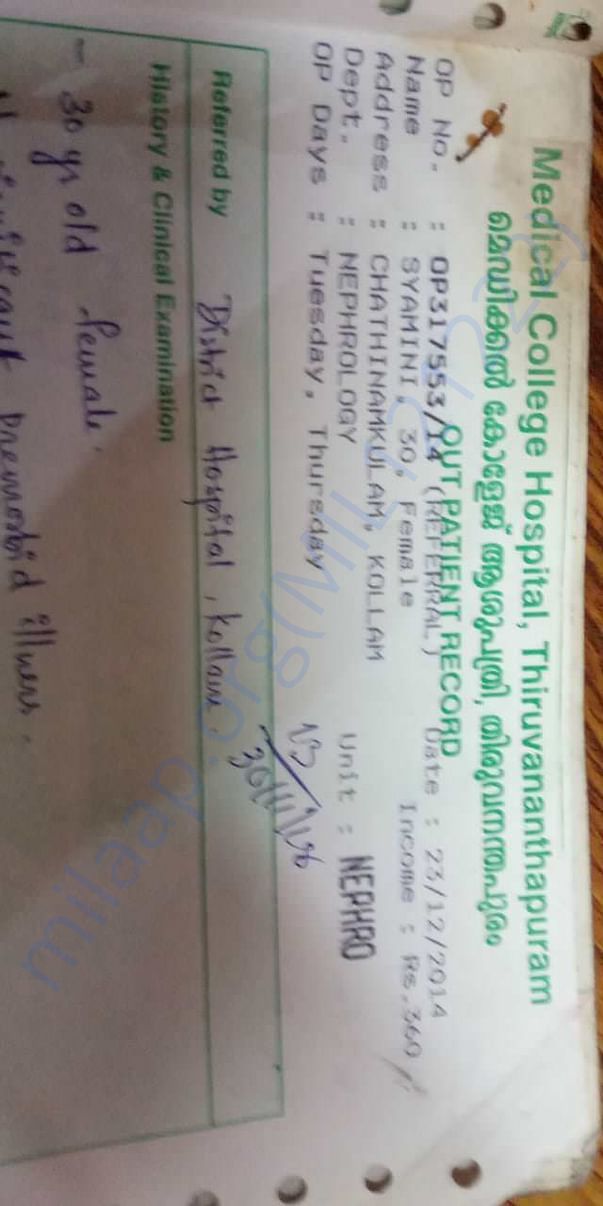 Medical College Hospital, Thiruvananthapuram
മെഡിക്കൽ കോളേജ് ആശുപത്രി, തിരുവനന്തപുരം
OUT PATIENT RECORD
OP No. : OP317553/14 (REFERRAL) Date : 23/12/2014
Name : SYAMINI, 30, Female Income : Rs.360
Address : CHATHINAMKULAM, KOLLAM
Dept. : NEPHROLOGY Unit : NEPHRO
OP Days : Tuesday, Thursday
Referred by District Hospital, Kollam.
History & Clinical Examination
- 30 yr old female.
premorbid illness.
milaap.org